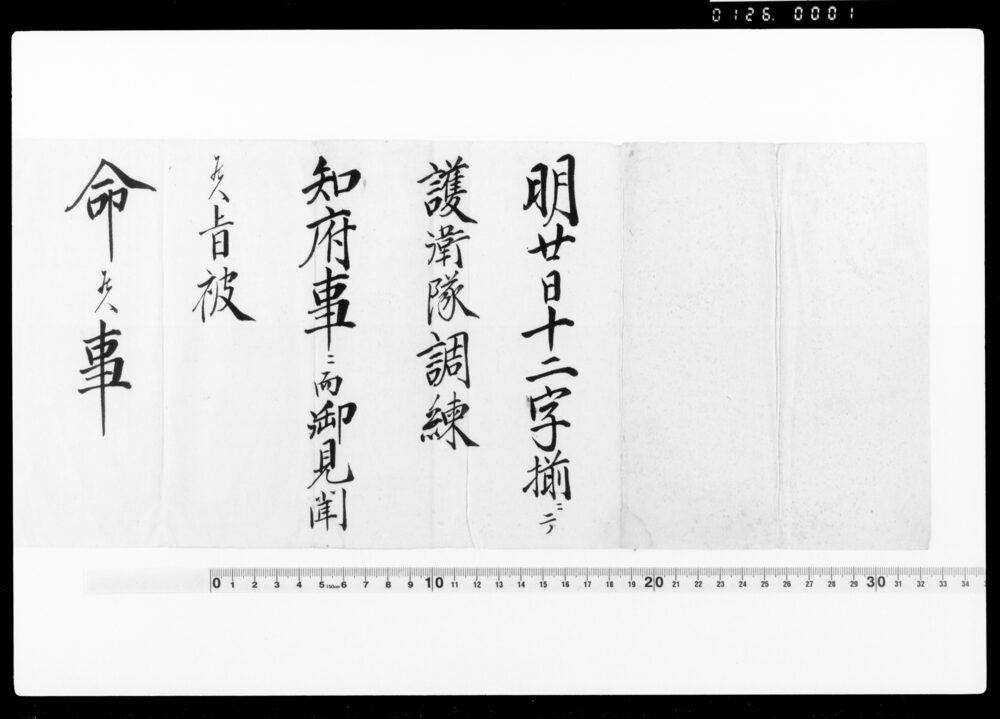 0126. 0001
明廿日十二字揃ニテ
護衛隊調練
知府事ニ而御見聞
候旨被
命候事
0 1 2 3 4 5 6 7 8 9 10 11 12 13 14 15 16 17 18 19 20 21 22 23 24 25 26 27 28 29 30 31 32 33 34